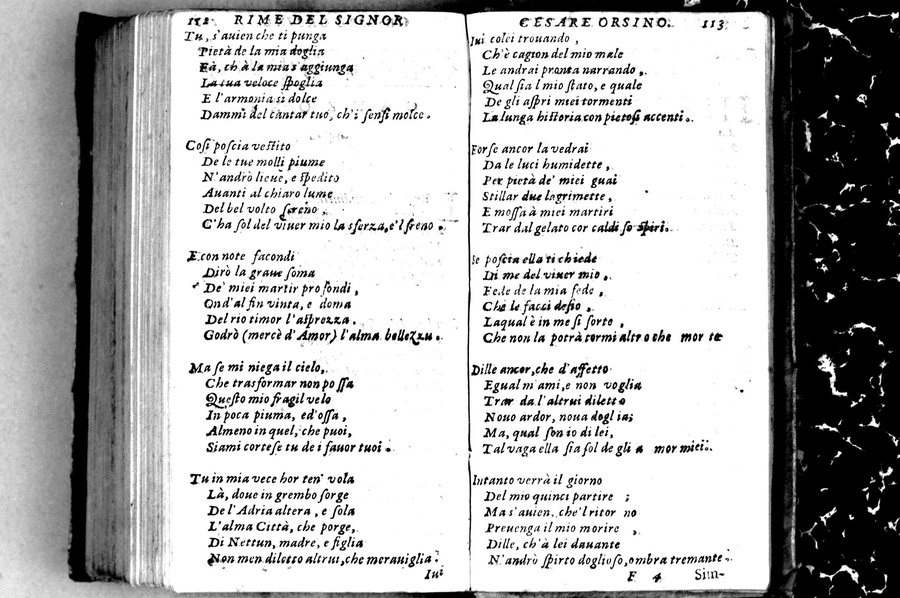 112 RIME DEL SIGNOR
Tu, s'auien che ti punga
Pietà de la mia doglia
Fà, ch à la mia s'aggiunga
La tua veloce spoglia
E l'armonia si dolce
Dammi del cantar tuo, ch'i sensi molce.
Così poscia vestito
De le tue molli piume
N'andrò lieue, e spedito
Auanti al chiaro lume
Del bel volto sereno,
C'ha sol del viuer mio la sferza, e'l freno.
E con note facondi
Dirò la graue soma
De' miei martir profondi,
Ond'al fin vinta, e doma
Del rio timor l'asprezza.
Godrò (mercè d'Amor) l'alma bellezzu.
Ma se mi niega il cielo,
Che trasformar non possa
Questo mio fragil velo
In poca piuma, ed'ossa,
Almeno in quel, che puoi,
Siami cortese tu de i fauor tuoi.
Tu in mia vece hor ten' vola
Là, doue in grembo sorge
De l'Adria altera, e sola
L'alma Città, che porge,
Di Nettun, madre, e figlia
Non men diletto altrui, che merauiglia.
Iui
CESARE ORSINO. 113
Iui colei trouando,
Ch'è cagion del mio male
Le andrai pronta narrando,
Qual sia l mio stato, e quale
De gli aspri miei tormenti
La lunga historia con pietosi accenti.
Forse ancor la vedrai
Da le luci humidette,
Per pietà de' miei guai
Stillar due lagrimette,
E mossa à miei martiri
Trar dal gelato cor caldi sospiri.
Se poscia ella ti chiede
Di me del viuer mio,
Fede de la mia fede,
Che le facci desio,
Laqual è in me sì forte,
Che non la potrà tormi altro che mor te
Dille ancor, che d'affetto
Egual m'ami, e non voglia
Trar da l'altrui diletto
Nouo ardor, noua doglia;
Ma, qual son io di lei,
Tal vaga ella sia sol de gli a mor miei.
Intanto verrà il giorno
Del mio quinci partire;
Ma s'auien, che'l ritor no
Preuenga il mio morire,
Dille, ch'à lei dauante
N'andrò spirto doglioso, ombra tremante.
F 4 Sim-